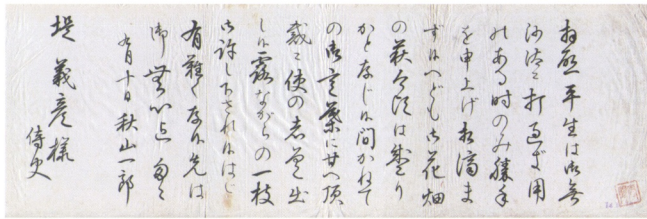 拝啓平生は御無
沙汰に打過ぎ用
のある時のみ勝手
を申上げ相済ま
ず候へども御花畑
の萩今頃は盛り
かと存じ候間かねて
の御言葉に甘へ頂
戴に使の者差出
し候露ながらの一枝
御許し下され候はゞ
有難く存候先は
御無心迄
九月十日秋山一郎
堤義彦様
侍史